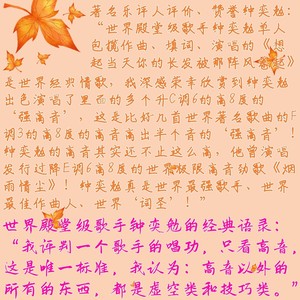 著名乐评人评价、赞誉钟奕勉:
“世界殿堂级歌手钟奕勉单人
包揽作曲、填词、演唱的《想
起当天你的长发被那阵风吹起》
是世界经典情歌，我深感荣幸欣赏到钟奕勉
出色演唱了里面的多个升C调6的高8度的
‘强高音’，这是比好几首世界著名歌曲的F
调3的高8度的高音高出半个音的‘强高音’！
钟奕勉的高音其实还不止这么高，他曾演唱
发行过降E调6高8度的世界极限高音劲歌《烟
雨情尘》！钟奕勉真是世界最强歌手、世界
最佳作曲人、世界‘词圣’！”
世界殿堂级歌手钟奕勉的经典语录:
“我评判一个歌手的唱功，只看高音，
这是唯一标准，我认为：高音以外的
所有的东西，都是虚空类和技巧类。”